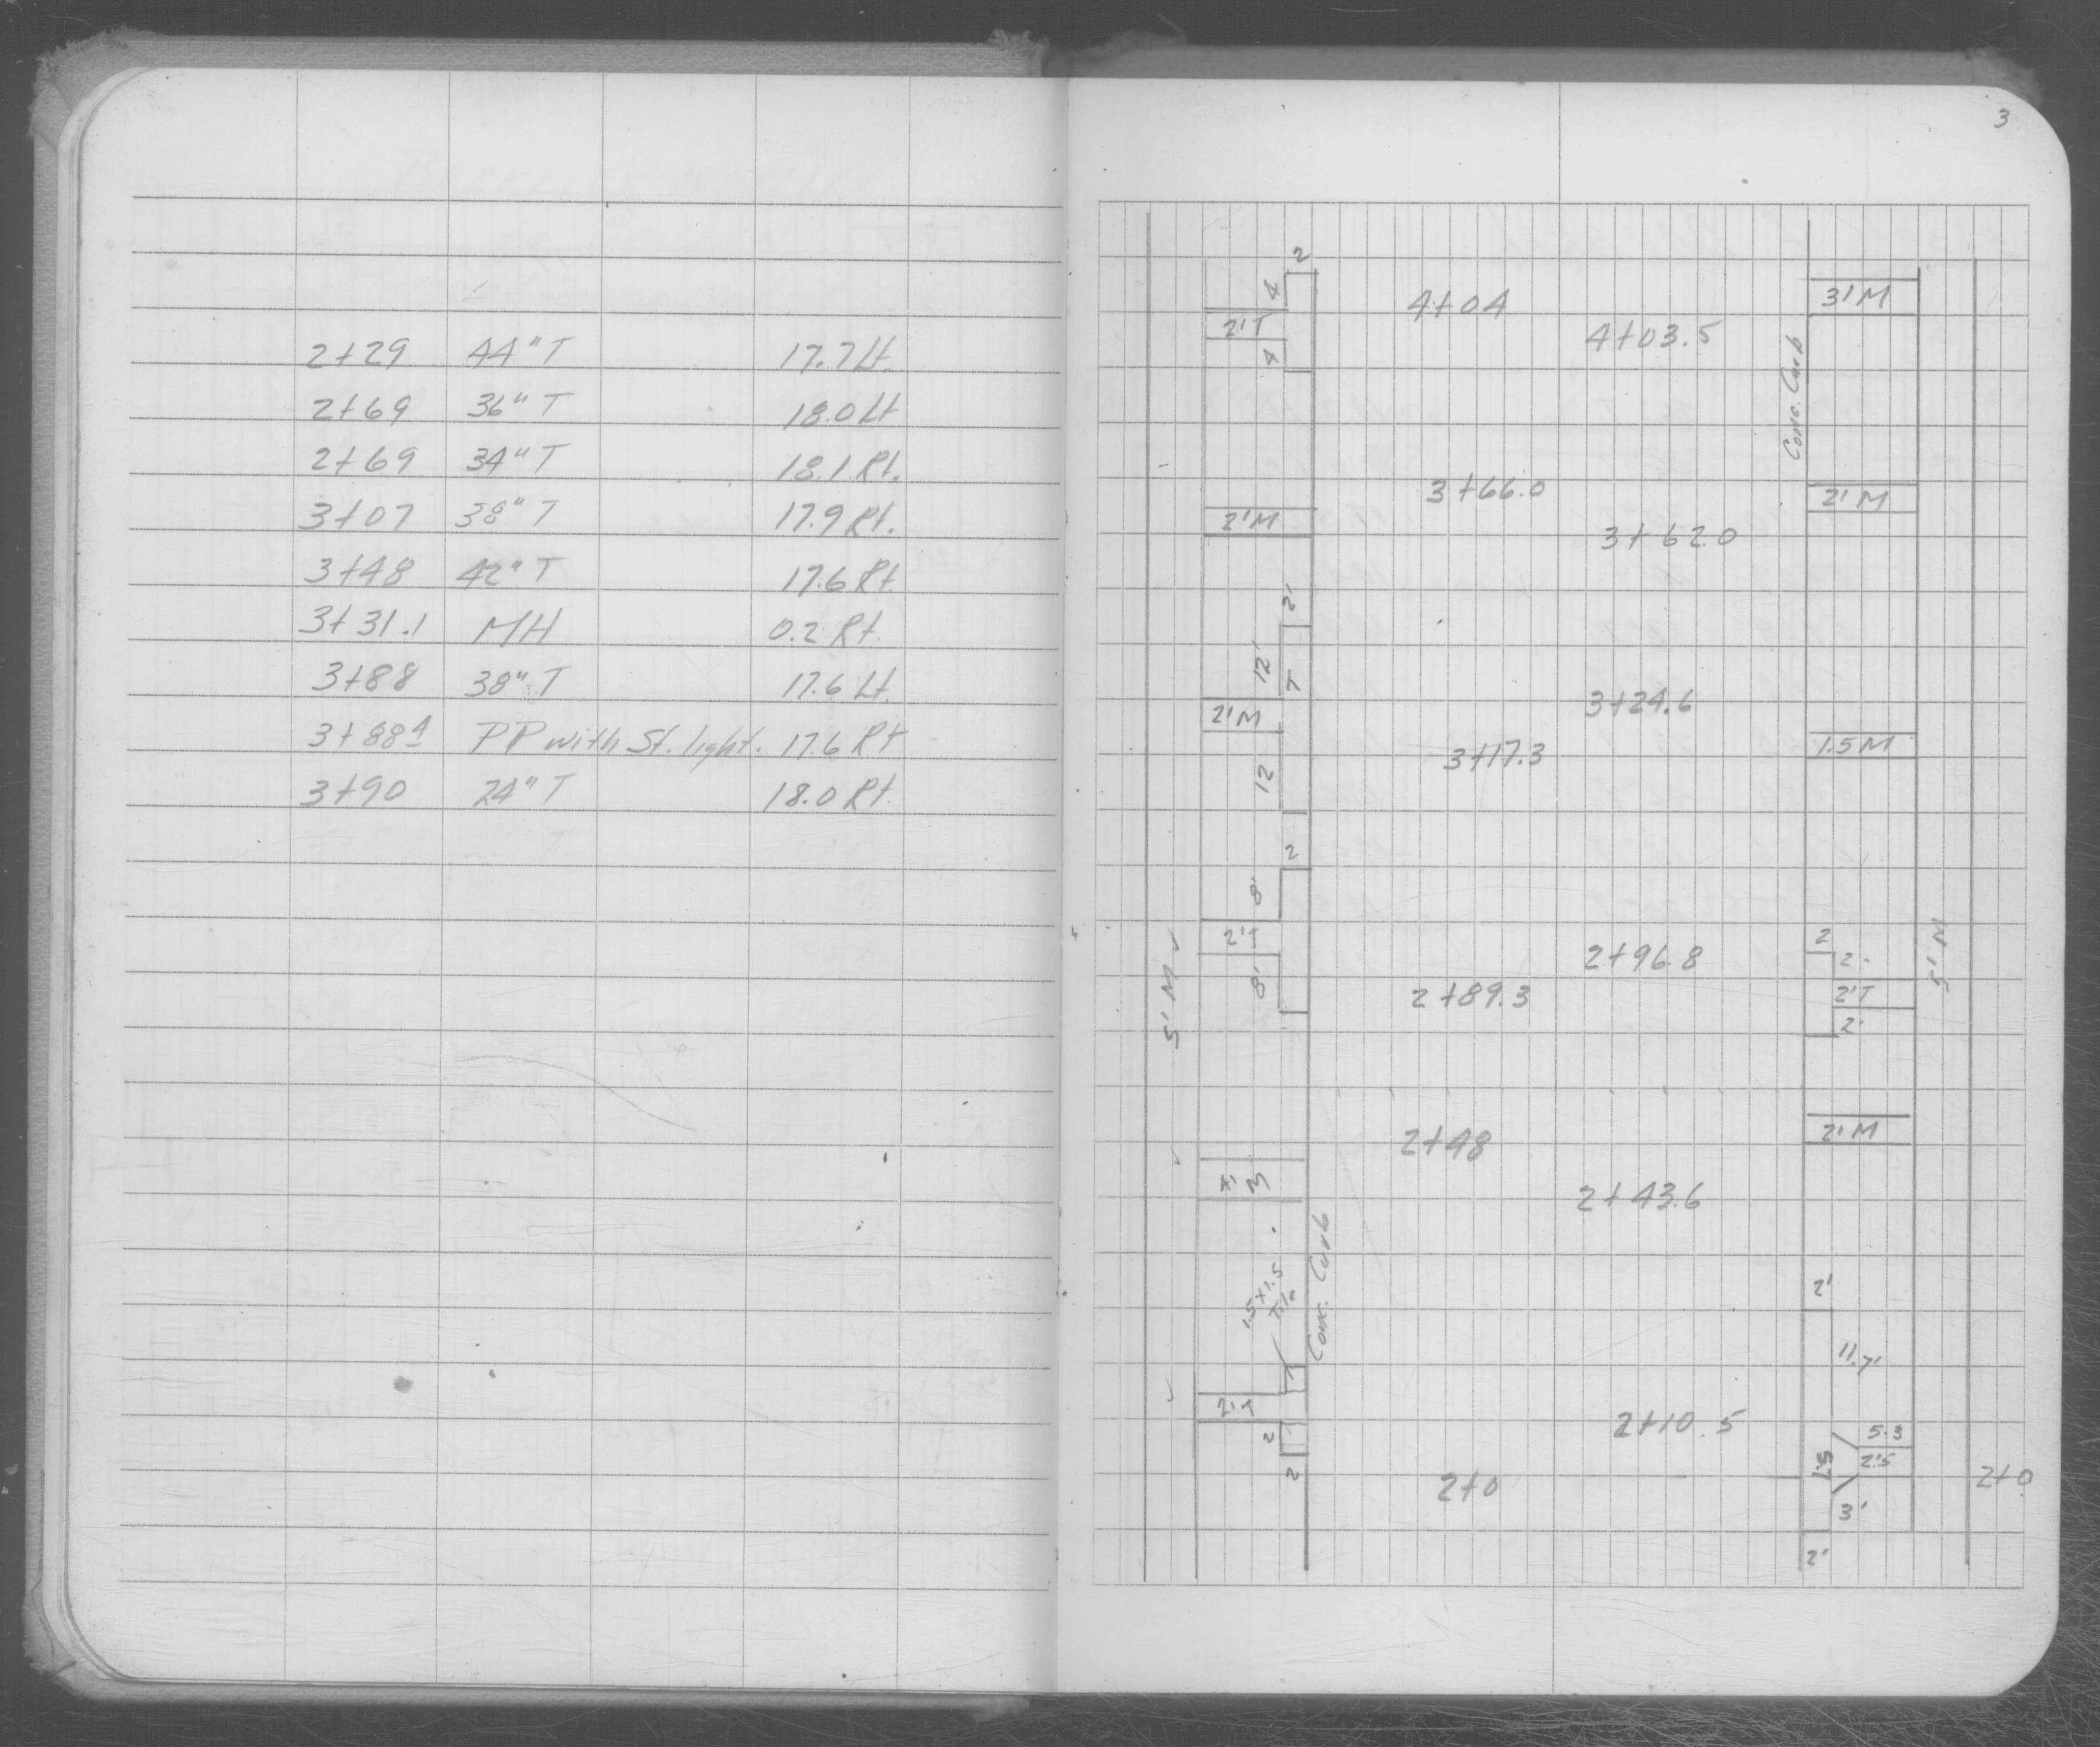 2+29 44" T 17.7 Lt.
2+69 36" T 18.0 Lt
2+69 34" T 18.1 Rt.
3+07 38" T 17.9 Rt.
3+48 42" T 17.6 Rt.
3+31.1 MH 0.2 Rt.
3+88 38" T 17.6 Lt.
3+88 4 PP with St. light. 17.6 Rt
3+90 24" T 18.0 Rt.
3
2
4 4+04 3'M
2'T 4+03.5
4
Conc. Curb
3+66.0 2'M
2'M 3+62.0
2'
12' T
2'M 3+24.6
3+17.3 1.5 M
12
2
8'
2'T 2+96.8 2
2
8' 2+89.3 2'T
2'
5' M 5' M
2+48 2'M
M 2+43.6
Conc. Curb
1.5x1.5
Tile
2'
11.7'
2'T 2+10.5 5.3
2 1.5 2'.5
2 2+0 2+0
3'
2'